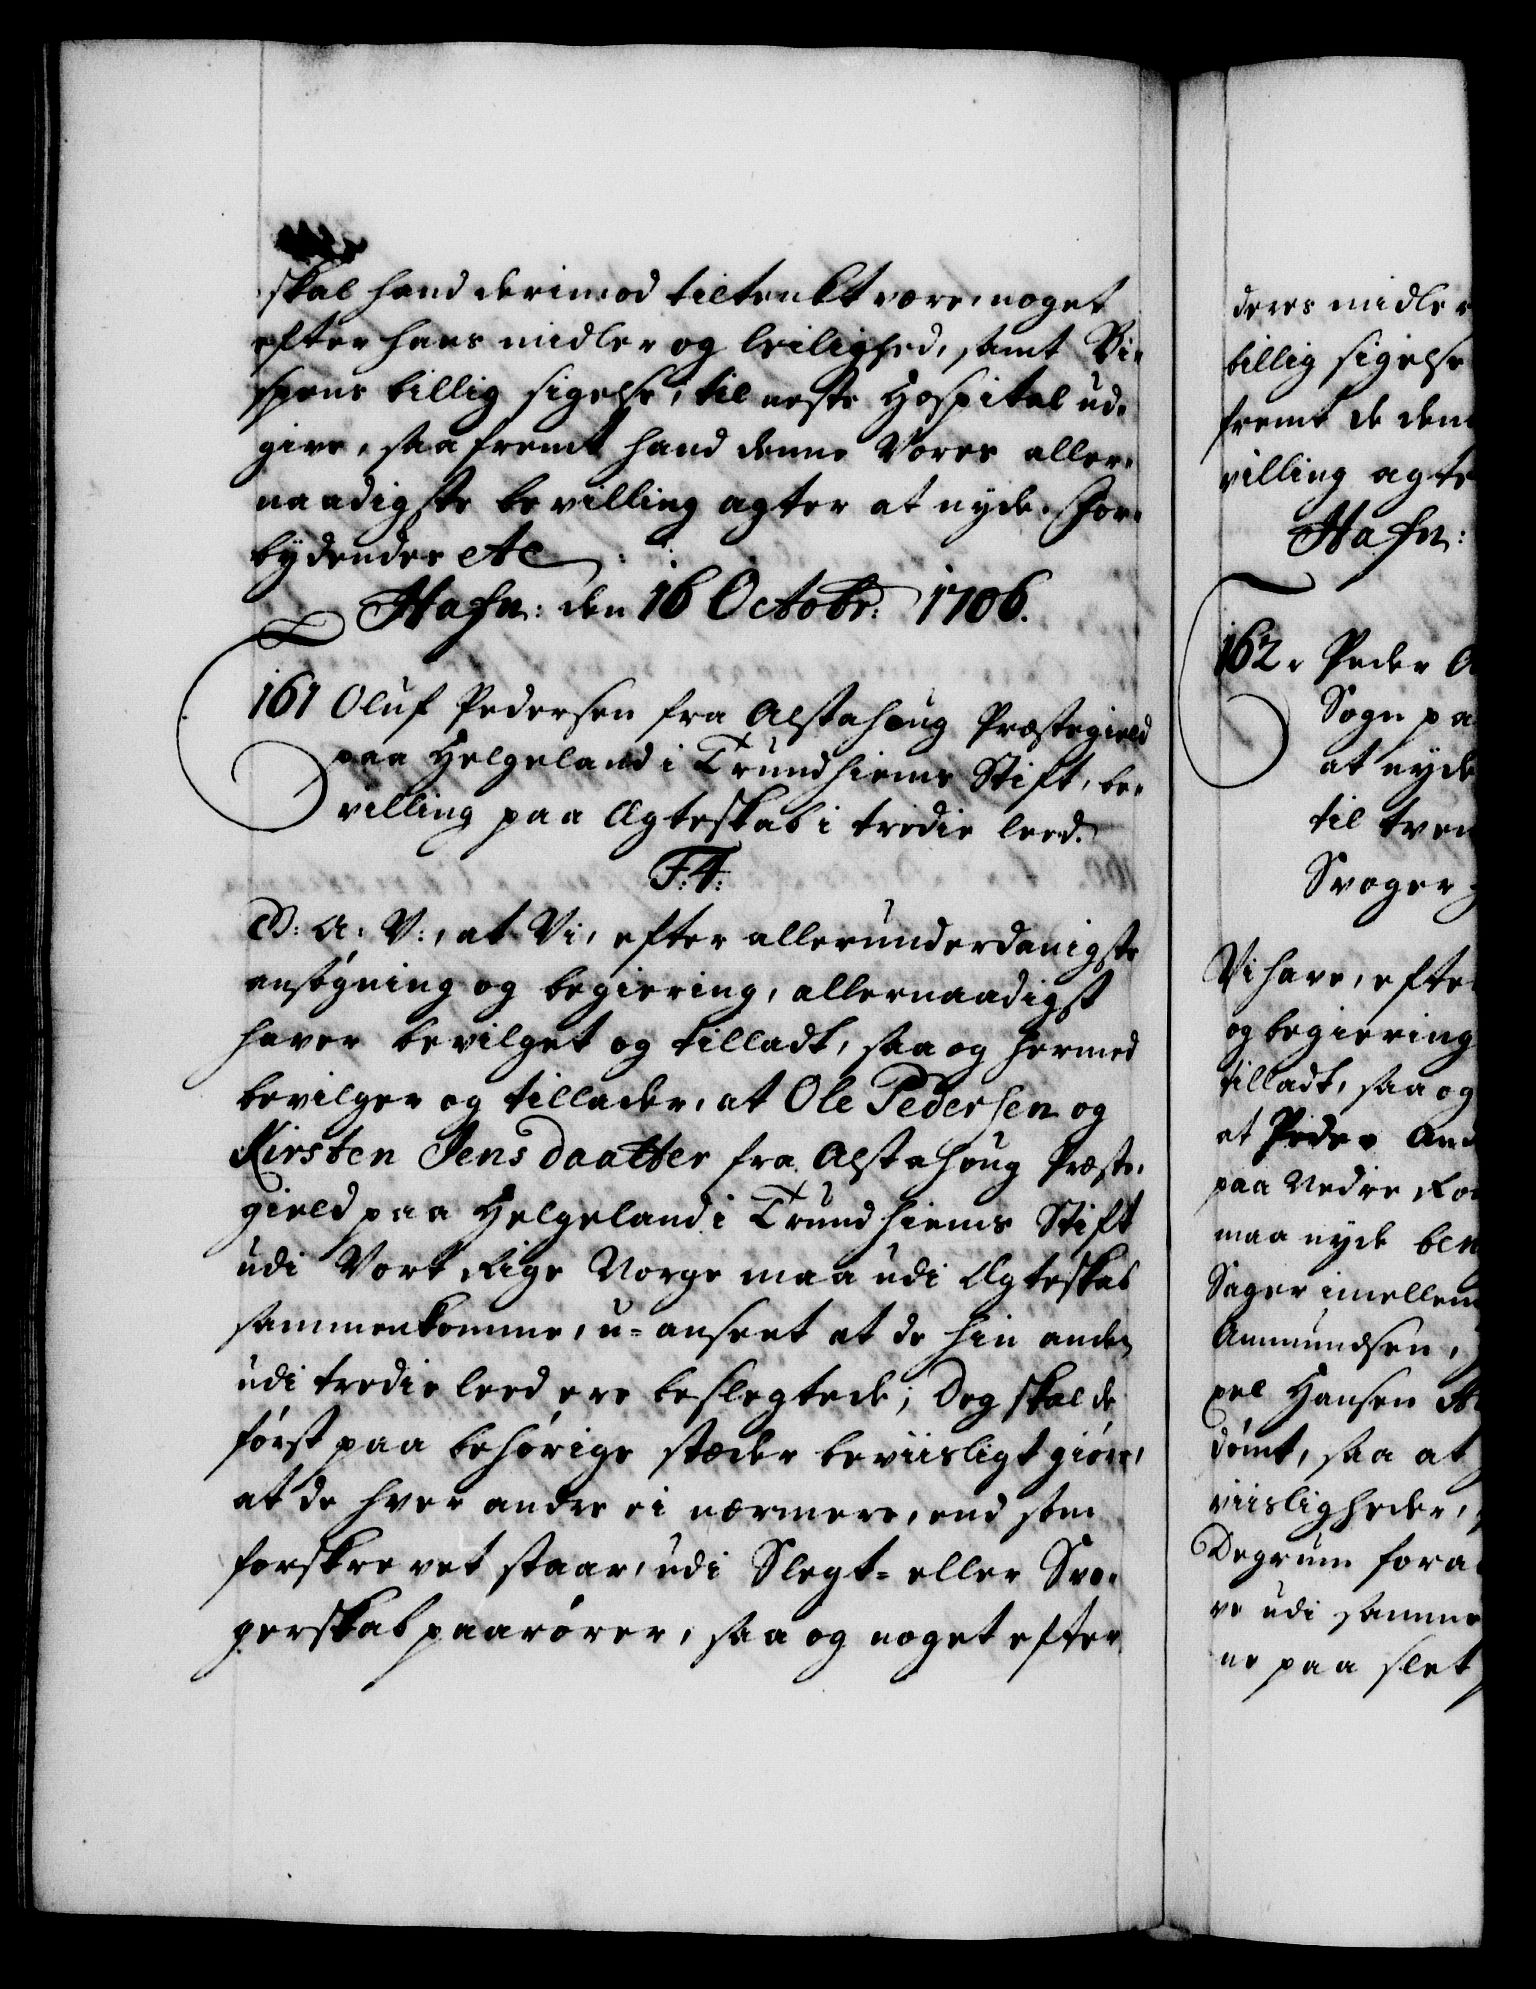 skal hand derimod tiltenkt være, noget
efter hans midler og leilighed, samt Bi-
spens billig sigelse, til neste Hospital ud-
give, saa fremt hand denne Vores aller-
naadigste bevilling agter at nyde. For-
bydendes etc
Hafn: den 16 Octobr: 1706.
161 Oluf Pedersen fra Alstahoug Præstegield
paa Helgeland i Trundhiems Stift, be-
villing paa Ægteskab i tredie leed.
F:4:
G: A: V:, at Vi, efter allerunderdanigste
ansøgning og begiering, allernaadigst
haver bevilget og tilladt, saa og hermed
bevilger og tillader, at Ole Pedersen og
Kirsten Jens daatter fra Alstahoug Præste-
gield paa Helgeland i Trundhiems Stift
udi Vort Rige Norge maa udi Ægteskab
sammenkomme, u-anseet at de hin anden
udi tredie leed ere beslegtede; Dog skal de
først paa behørige stæder beviisligt giøre,
at de hver andre ei nærmere, end som
forskrevet staar, udi Slegt- eller Svo-
gerskab paarører, saa og noget efter
deres midler
billig sigelse
fremt de den
villing agte
Hafn:
162. Peder A
Sogn pa
at nyde
til tven
Svoger
Vi have, efte
og begiering
tilladt, saa og
at Peder And
paa Nedre Ro
maa nyde ben
Sager imellem
Ammundsen,
pel Hansen
dømt, saa at
viisligheder,
Degrum fora
ve udi samme
ne paa slet